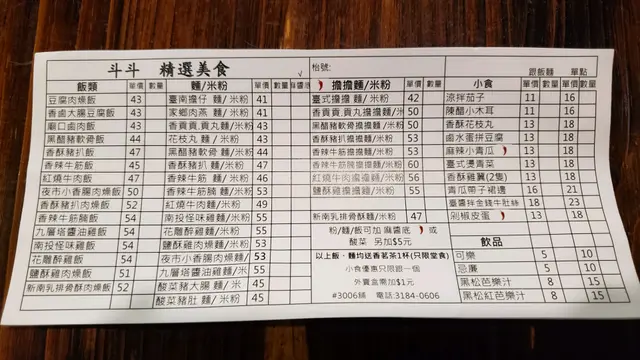 斗斗 精選美食
枱號:
跟飯麵 單點
飯類 單價 數量 麵/米粉 單價 數量 麻醬底 擔擔麵/米粉 單價 數量 小食 單價 數量 單價 數量
豆腐肉燥飯 43 臺南擔仔 麵/米粉 41 臺式擔擔 麵/米粉 42 涼拌茄子 11 16
香滷大腸豆腐飯 43 家鄉肉燕 麵/米粉 41 香貢貢,貢丸擔擔麵/米粉 50 陳醋小木耳 11 16
廟口滷肉飯 43 香貢貢,貢丸麵/米粉 43 黑醋豬軟骨擔擔麵/米粉 50 香酥花枝丸 13 18
黑醋豬軟骨飯 44 花枝丸 麵 / 米粉 43 香酥豬扒擔擔麵/米粉 53 鹵水蛋拼豆腐 13 18
香酥豬扒飯 47 黑醋豬軟骨 麵/米粉 44 香辣牛筋擔擔麵/米粉 53 麻辣小青瓜 13 18
香辣牛筋飯 45 香酥豬扒 麵/米粉 47 香辣牛筋腩擔擔麵/米粉 60 臺式燙青菜 13 18
紅燒牛肉飯 47 香辣牛筋 麵/米粉 46 紅燒牛肉擔擔麵/米粉 56 香酥雞翼(2隻) 13 18
夜市小香腸肉燥飯 50 香辣牛筋腩 麵/米粉 53 鹽酥雞擔擔麵/米粉 55 青瓜帶子裙邊 16 21
香酥豬扒肉燥飯 52 紅燒牛肉 麵/米粉 49 臺醬拌金錢牛肚絲 18 23
香辣牛筋腩飯 54 南投怪味雞麵/米粉 55 新南乳排骨酥麵/米粉 47 剁椒皮蛋 13 18
九層塔醬油雞飯 54 花雕醉雞 麵/米粉 55 粉/麵/飯可加 麻醬底 或
南投怪味雞飯 54 鹽酥雞肉燥麵/米粉 53 酸菜 另加$5元 飲品
花雕醉雞飯 54 夜市小香腸肉燥麵/米粉 53 以上飯、麵均送香茗茶1杯(只限堂食) 可樂 5 10
鹽酥雞肉燥飯 51 九層塔醬油雞麵/米粉 55 小食優惠只限跟一個 忌廉 5 10
新南乳排骨酥肉燥飯 52 酸菜豬大腸 麵/ 米粉 45 外賣盒需加$1元 黑松芭樂汁 8 15
酸菜豬肚 麵/ 米粉 45 #3006舖 電話:3184-0606 黑松紅芭樂汁 8 15